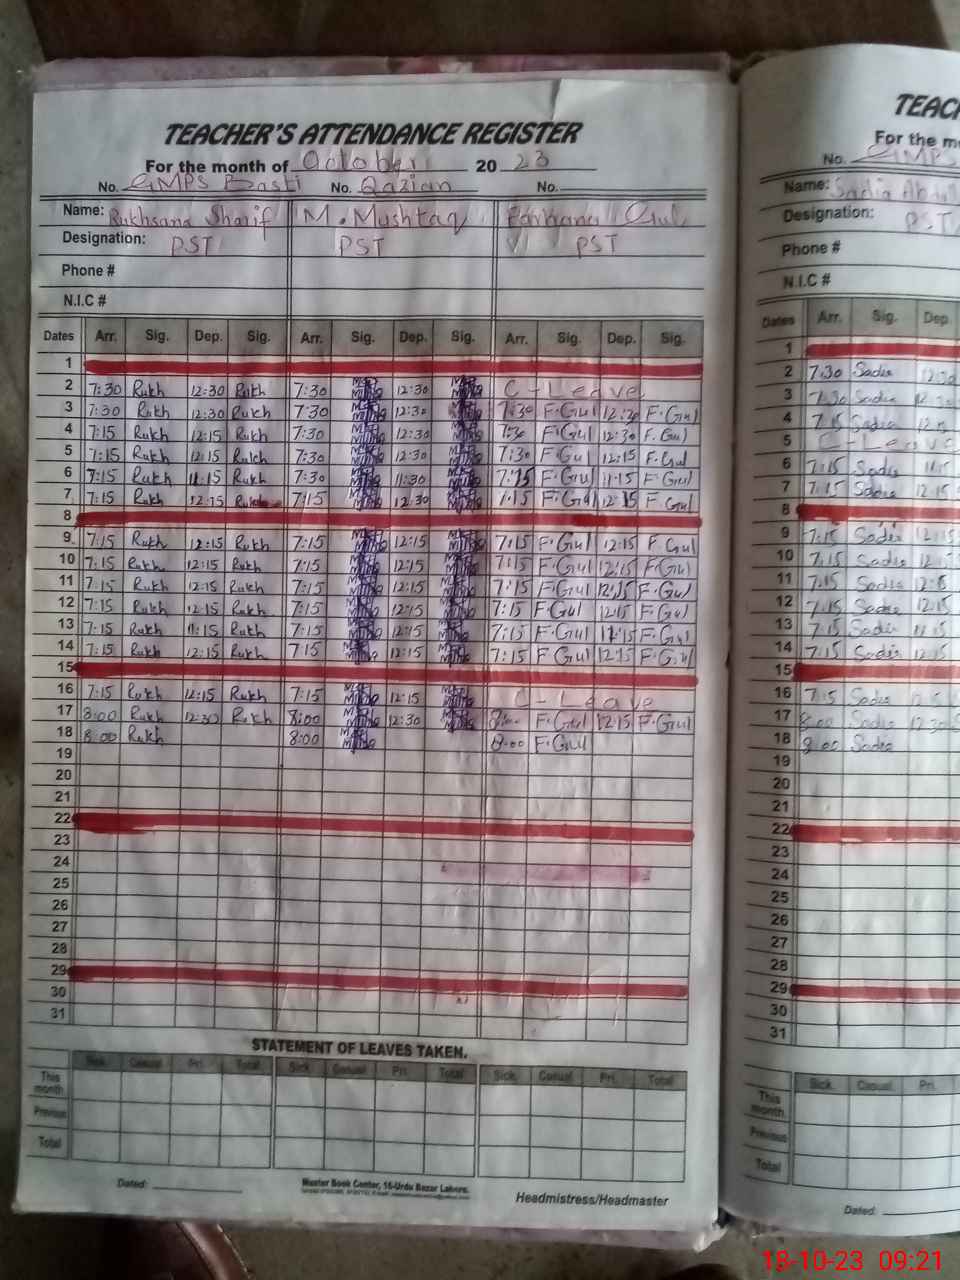 TEACHER'S ATTENDANCE REGISTER
For the month of October 20 23
No. GMPS Basti No. Qazian No.
Name: Rukhsana Sharif M. Mushtaq Farhana Gul
Designation: PST PST PST
Phone #
N.I.C #
Dates Arr. Sig. Dep. Sig. Arr. Sig. Dep. Sig. Arr. Sig. Dep. Sig.
1
2 7:30 Rukh 12:30 Rukh 7:30 12:30 C-Leave
3 7:30 Rukh 12:30 Rukh 7:30 12:30 7:30 F.Gul 12:30 F.Gul
4 7:15 Rukh 12:15 Rukh 7:30 12:30 7:30 F.Gul 12:30 F.Gul
5 7:15 Rukh 12:15 Rukh 7:30 12:30 7:30 F.Gul 12:15 F.Gul
6 7:15 Rukh 11:15 Rukh 7:30 11:30 7:15 F.Gul 11:15 F.Gul
7 7:15 Rukh 12:15 Rukh 7:15 12:30 7:15 F.Gul 12:15 F.Gul
8
9 7:15 Rukh 12:15 Rukh 7:15 12:15 7:15 F.Gul 12:15 F.Gul
10 7:15 Rukh 12:15 Rukh 7:15 12:15 7:15 F.Gul 12:15 F.Gul
11 7:15 Rukh 12:15 Rukh 7:15 12:15 7:15 F.Gul 12:15 F.Gul
12 7:15 Rukh 12:15 Rukh 7:15 12:15 7:15 F.Gul 12:15 F.Gul
13 7:15 Rukh 11:15 Rukh 7:15 12:15 7:15 F.Gul 11:15 F.Gul
14 7:15 Rukh 12:15 Rukh 7:15 12:15 7:15 F.Gul 12:15 F.Gul
15
16 7:15 Rukh 12:15 Rukh 7:15 12:15 C-Leave
17 8:00 Rukh 12:30 Rukh 8:00 12:30 8:00 F.Gul 12:15 F.Gul
18 8:00 Rukh 8:00 8:00 F.Gul
19
20
21
22
23
24
25
26
27
28
29
30
31
STATEMENT OF LEAVES TAKEN.
Sick Casual Pri. Total Sick Casual Pri. Total Sick Casual Pri. Total
This month
Previous
Total
Dated:
Master Book Center, 16-Urdu Bazar Lahore.
Headmistress/Headmaster
TEACH
For the m
No. GMPS
Name: Sadia
Designation: PST
Phone #
N.I.C #
Dates Arr. Sig. Dep.
1
2 7:30 Sadia 12:30
3 7:30 Sadia
4 7:15 Sadia 12:15
5 C-Leave
6 7:15 Sadia 11:15
7 7:15 Sadia 12:15
8
9 7:15 Sadia 12:15
10 7:15 Sadia 12:15
11 7:15 Sadia 12:15
12 7:15 Sadia 12:15
13 7:15 Sadia 11:15
14 7:15 Sadia 12:15
15
16 7:15 Sadia 12:15
17 8:00 Sadia 12:30
18 8:00 Sadia
19
20
21
22
23
24
25
26
27
28
29
30
31
Sick Casual Pri.
This month
Previous
Total
Dated:
18-10-23 09:21